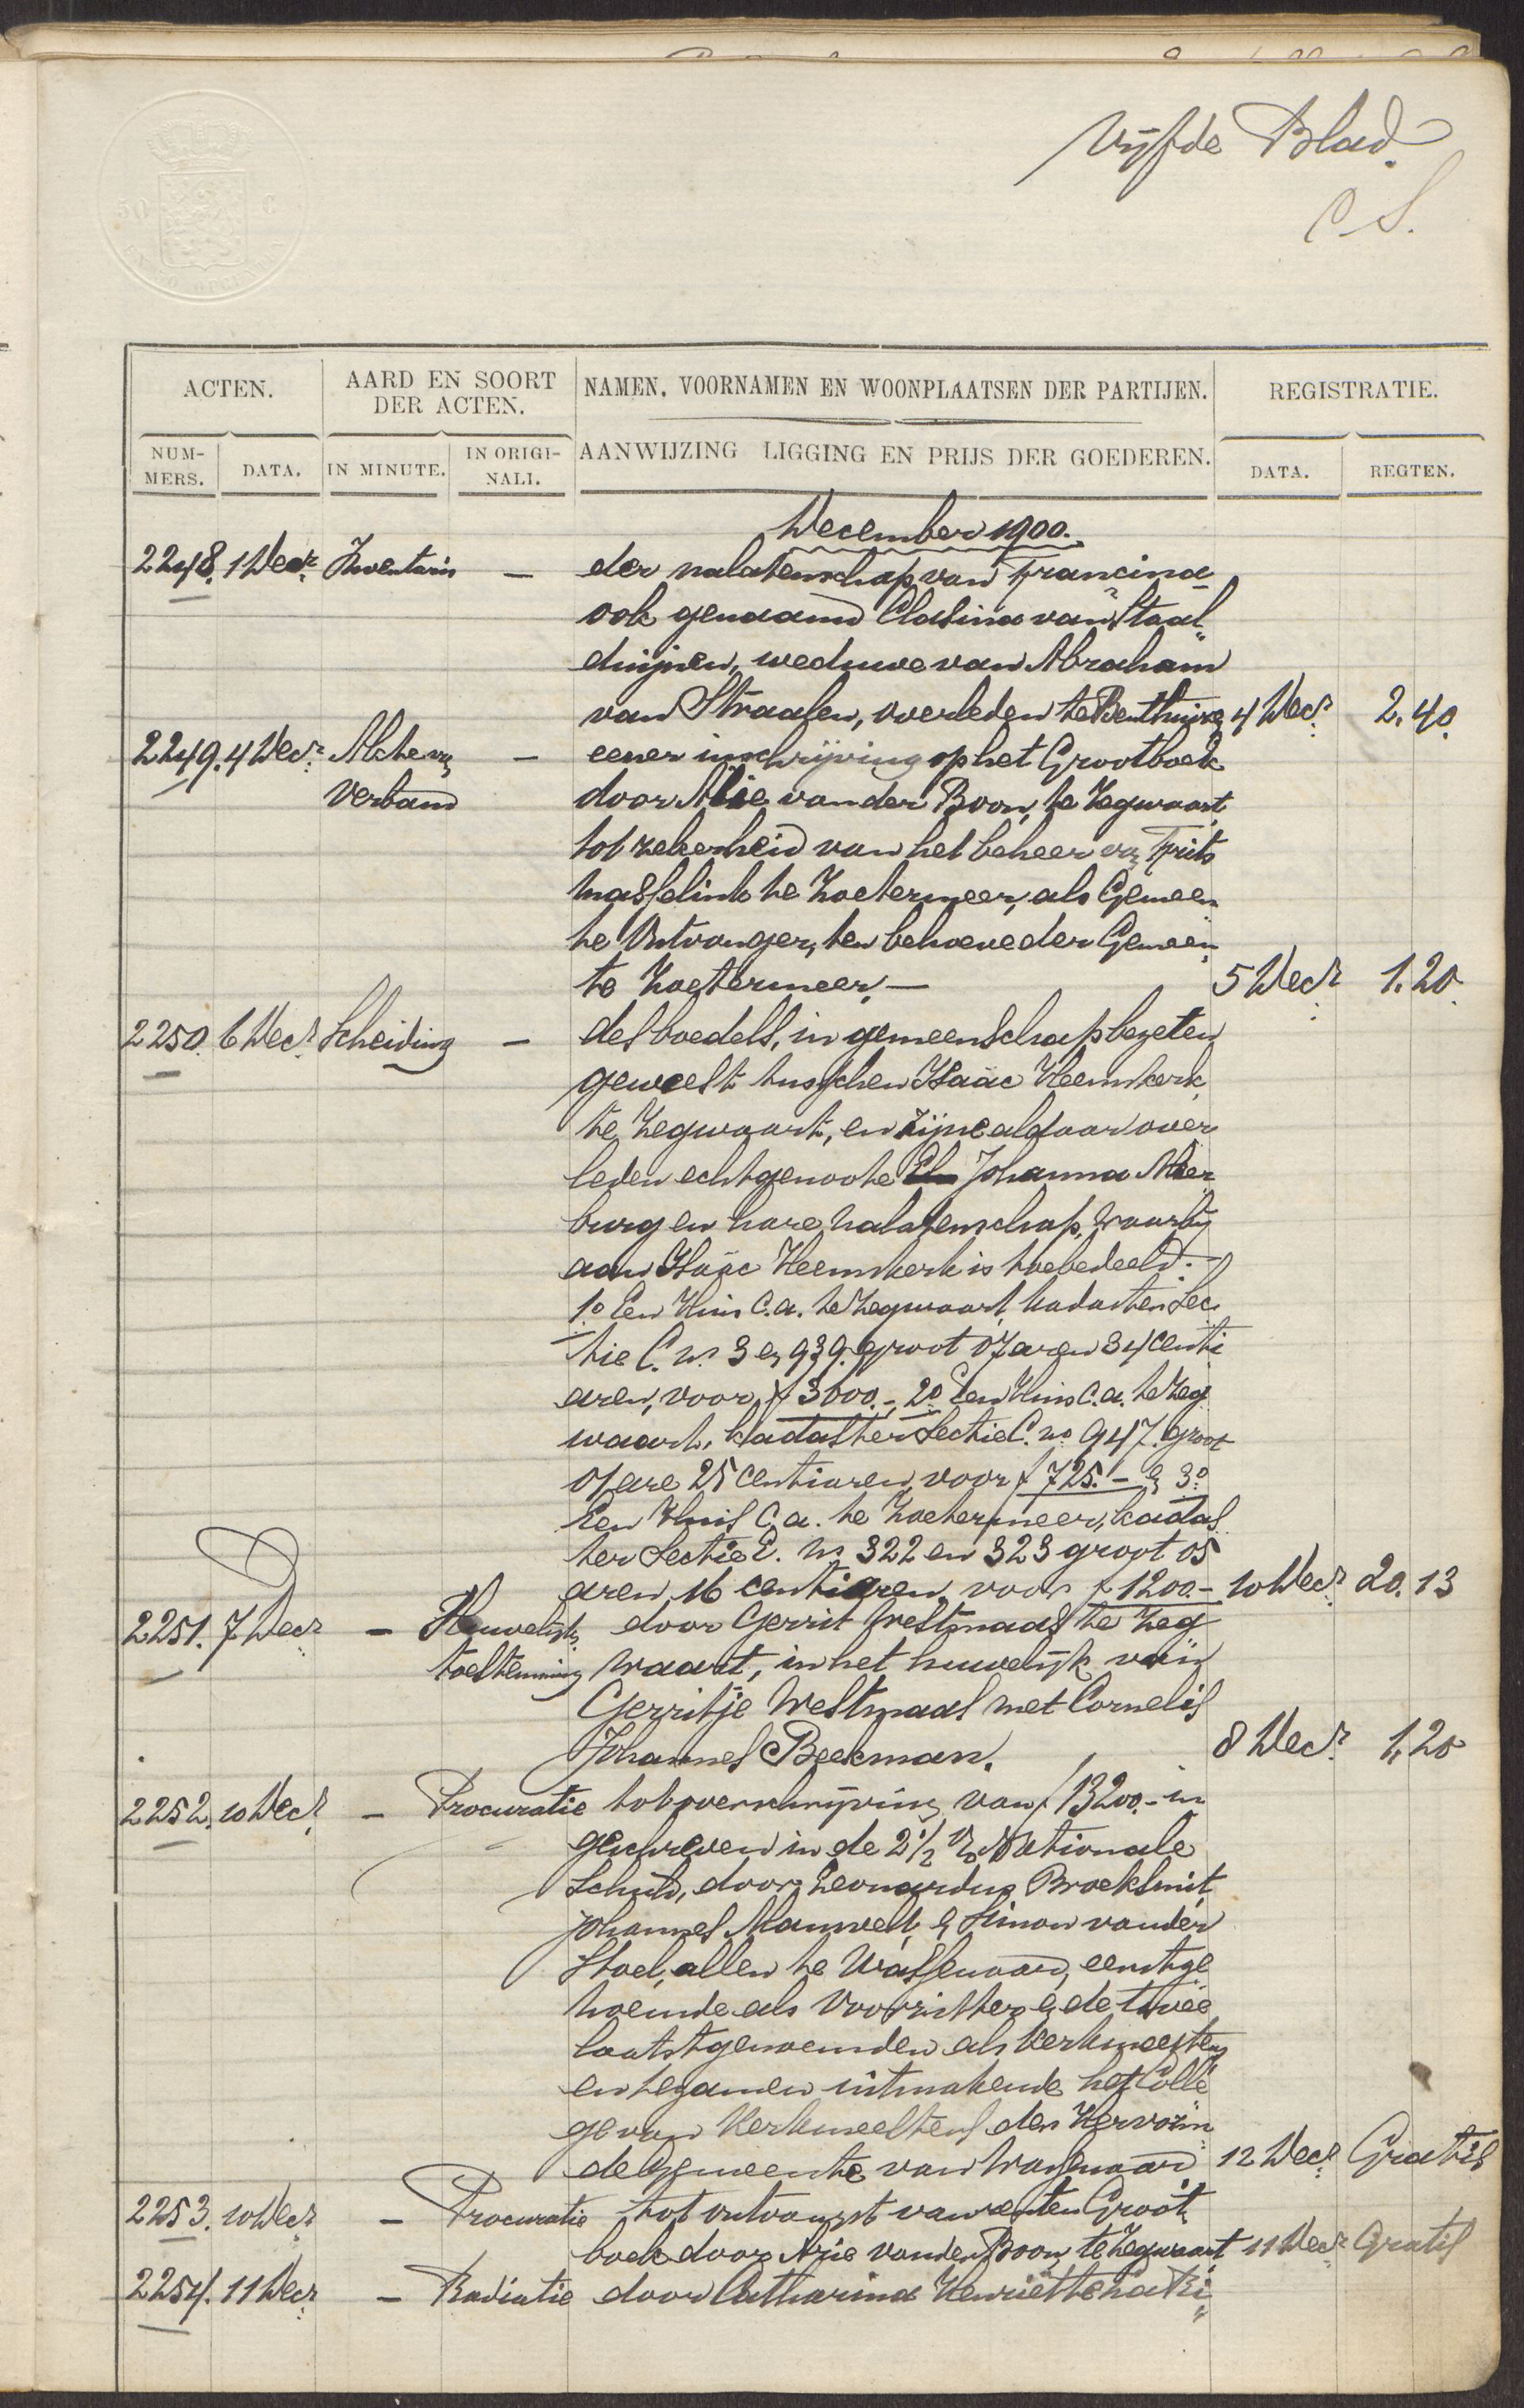 Vijfde Blad.
C S.
ACTEN.
AARD EN SOORT
DER ACTEN.
NAMEN, VOORNAMEN EN WOONPLAATSEN DER PARTIJEN.
REGISTRATIE.
NUM-
MERS.
DATA.
IN MINUTE.
IN ORIGI-
NALI.
AANWIJZING LIGGING EN PRIJS DER GOEDEREN.
DATA.
REGTEN.
December 1900.
2248. 1 Decr. Inventaris — der nalatenschap van Francina
ook genaamd Clasina van Staal-
duijnen, weduwe van Abraham
van Straalen, overleden te Benthuizen 4 Decr. 2.40.
2249. 4 Decr. Acte van — eener inschrijving op het Grootboek
Verband door Arie van der Boon, te Zegwaart
tot zekerheid van het beheer van Frits
Masselink te Zoetermeer, als Gemeen
te Ontvanger, ten behoeve der Gemeen
te Zoetermeer. — 5 Decr. 1.20.
2250. 6 Decr. Scheiding — des boedels, in gemeenschap bezeten
geweest tusschen Isaäc Heemskerk
te Zegwaart, en zijne aldaar over
leden echtgenoote Johanna Meer
burg en hare nalatenschap, waarbij
aan Isaäc Heemskerk is toebedeeld. —
1o Een Huis c.a. te Zegwaart, kadaster Sec
tie C. no 3 en 939. groot 07 aren 34 centi
aren, voor f 3000.-, 2o Een Huis c.a. te Zeg
waart, kadaster Sectie C. no 947. groot
01 are 25 centiaren, voor f 725.- & 3o
Een Huis c.a. te Zoetermeer, kadas
ter Sectie E. no 322 en 323 groot 05
aren, 16 centiaren, voor f 1200.- 10 Decr. 20.13
2251. 7 Decr. — Huwelijks door Gerrit Westmaas te Zeg
toestemming waart, in het huwelijk van
Gerritje Westmaas met Cornelis
Johannes Beekman. 8 Decr. 1,20
2252. 10 Decr. — Procuratie tot overschrijving van f 13200.- in
geschreven in de 2 1/2 % Nationale
Schuld, door Leonardus Broeksmit,
Johannes Mansvelt, & Simon van der
Stoel, allen te Wassenaar, eerstge
noemde als Voorzitter & de twee
laatstgenoemden als Kerkmeesters
en tezamen uitmakende het Colle
ge van Kerkmeesters der Hervorm
de gemeente van Wassenaar. 12 Decr. Gratis
2253. 10 Decr. — Procuratie tot ontvangst van renten Groot
boek door Arie van der Boon te Zegwaart 11 Decr. Gratis
2254. 11 Decr. — Radiatie door Catharina Henriëtte